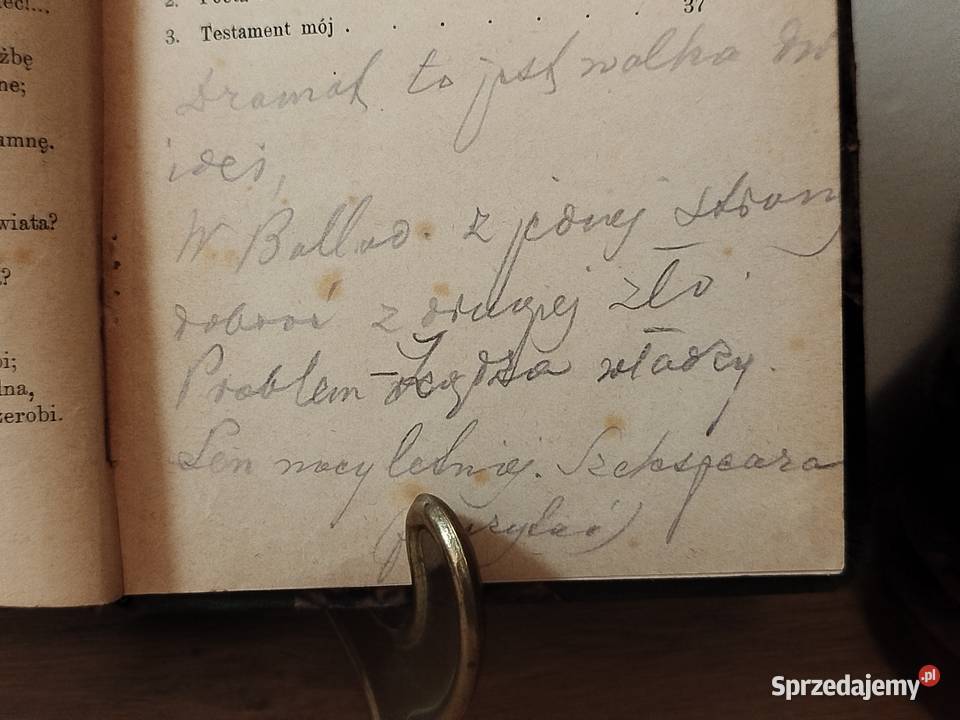 żbę
ne;
amnę.
wiata?
?
bi;
lna,
zerobi.
2. Poeta
37
3. Testament mój . . . . . . .
Dramat to jest walka dw
idei,
W Ballad. z jednej strony
dobroć z drugiej zło.
Problem – żądza władzy.
Sen nocy letniej. Szekspeara
Sprzedajemy.pl